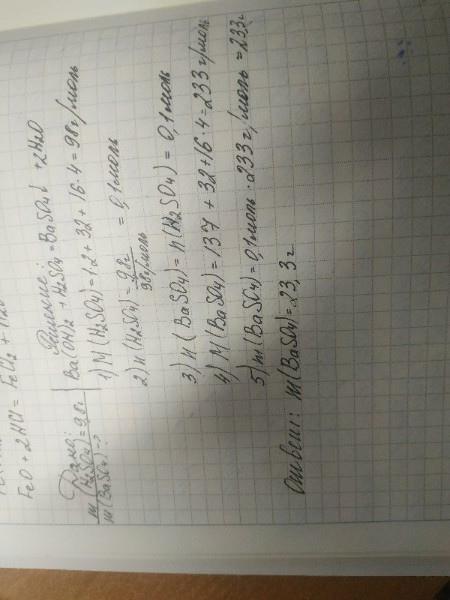 FeO + 2HCl = FeCl₂ + H₂O
Дано:
m(H₂SO₄) = 9,8г
m(BaSO₄) - ?
Решение:
Ba(OH)₂ + H₂SO₄ = BaSO₄↓ + 2H₂O
1) M(H₂SO₄) = 1·2 + 32 + 16·4 = 98г/моль
2) n(H₂SO₄) = 9,8г / 98г/моль = 0,1моль
3) n(BaSO₄) = n(H₂SO₄) = 0,1моль
4) M(BaSO₄) = 137 + 32 + 16·4 = 233г/моль
5) m(BaSO₄) = 0,1моль · 233г/моль = 23,3г
Ответ: m(BaSO₄) = 23,3г